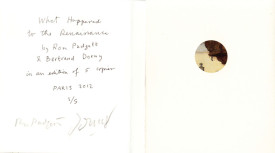 What Happened
to the Renaissance
by Ron Padgett
& Bertrand Dorny
in an edition of 5 copies
PARIS 2012
1/5
Ron Padgett